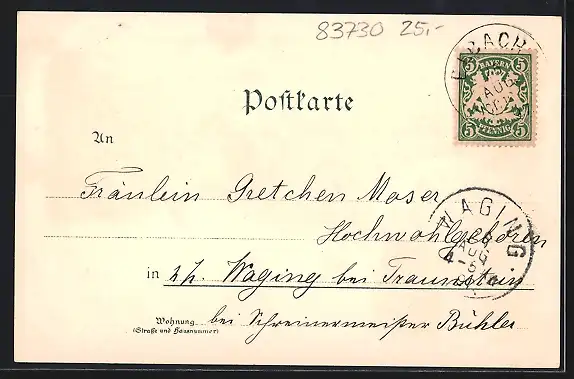 83730 25,-
BAYERN
5 5
5 5
PFENNIG
AUG
Postkarte
An
Fräulein Gretchen Moser
Hochwohlgeboren
WAGING
AUG
in z. Z. Waging bei Traunstein
Wohnung bei Schreinermeister Bühler
(Straße und Hausnummer)